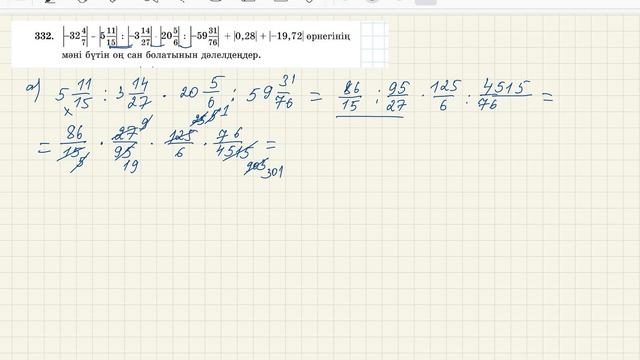 332. |-32 4/7| - |5 11/15| : |-3 14/27| · |20 5/6| : |-59 31/76| + |0,28| + |-19,72| өрнегінің
мәні бүтін оң сан болатынын дәлелдеңдер.
а) 5 11/15 : 3 14/27 · 20 5/6 : 59 31/76 = 86/15 : 95/27 · 125/6 : 4515/76 =
= 86/15 · 27/95 · 125/6 · 76/4515 =